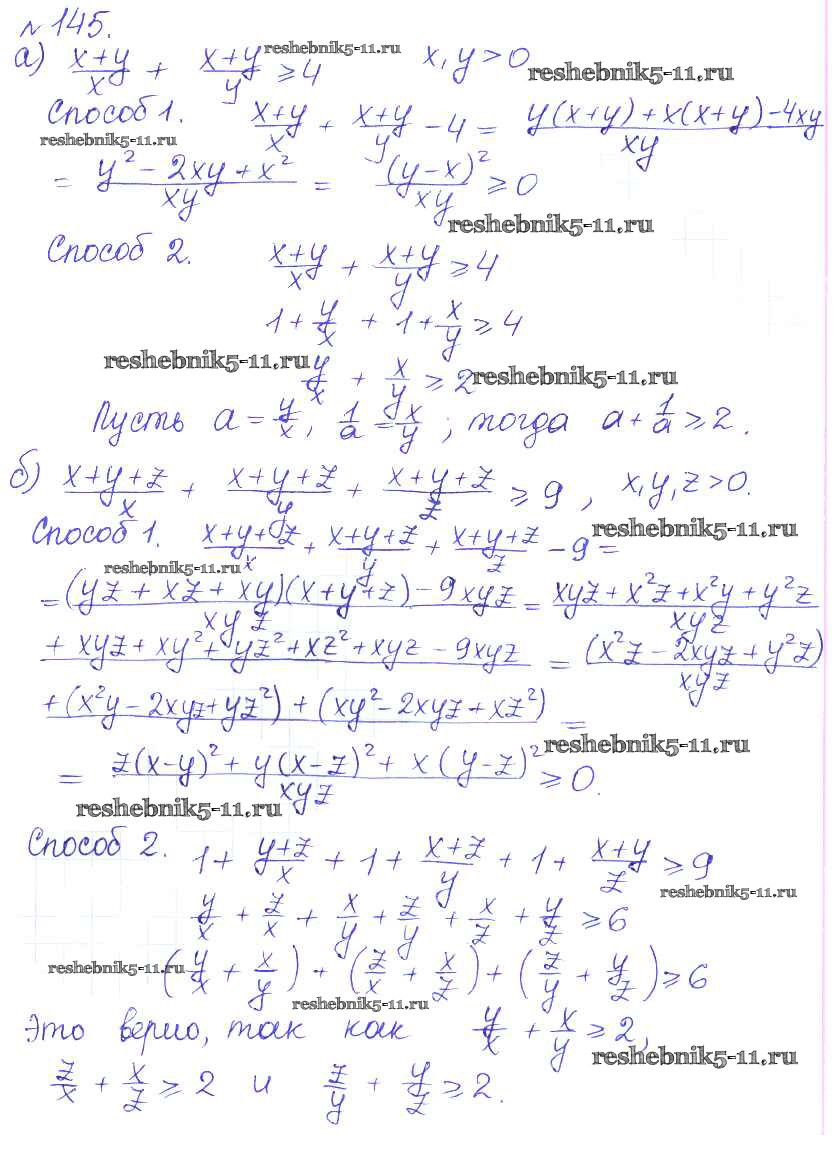 № 145.
а) (x+y)/x + (x+y)/y ≥ 4 x, y > 0
reshebnik5-11.ru reshebnik5-11.ru
Способ 1. (x+y)/x + (x+y)/y − 4 = (y(x+y) + x(x+y) − 4xy)/(xy)
reshebnik5-11.ru
= (y² − 2xy + x²)/(xy) = (y−x)²/(xy) ≥ 0
reshebnik5-11.ru
Способ 2. (x+y)/x + (x+y)/y ≥ 4
1 + y/x + 1 + x/y ≥ 4
reshebnik5-11.ru
y/x + x/y ≥ 2
reshebnik5-11.ru
Пусть a = y/x, 1/a = x/y; тогда a + 1/a ≥ 2.
б) (x+y+z)/x + (x+y+z)/y + (x+y+z)/z ≥ 9, x, y, z > 0.
Способ 1. (x+y+z)/x + (x+y+z)/y + (x+y+z)/z − 9 =
reshebnik5-11.ru
reshebnik5-11.ru
= ((yz + xz + xy)(x+y+z) − 9xyz)/(xyz) = (xyz + x²z + x²y + y²z
+ xyz + xy² + yz² + xz² + xyz − 9xyz)/(xyz) = ((x²z − 2xyz + y²z)
+ (x²y − 2xyz + yz²) + (xy² − 2xyz + xz²))/(xyz) =
= (z(x−y)² + y(x−z)² + x(y−z)²)/(xyz) ≥ 0.
reshebnik5-11.ru
reshebnik5-11.ru
Способ 2. 1 + (y+z)/x + 1 + (x+z)/y + 1 + (x+y)/z ≥ 9
reshebnik5-11.ru
y/x + z/x + x/y + z/y + x/z + y/z ≥ 6
reshebnik5-11.ru
(y/x + x/y) + (z/x + x/z) + (z/y + y/z) ≥ 6
reshebnik5-11.ru
Это верно, так как y/x + x/y ≥ 2,
reshebnik5-11.ru
z/x + x/z ≥ 2 и z/y + y/z ≥ 2.